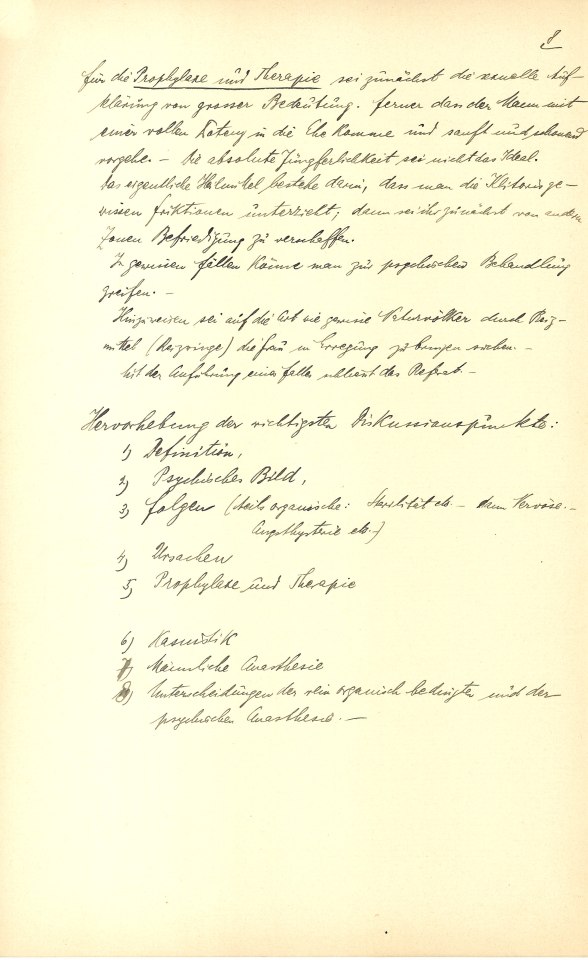 8
für die Prophylaxe und Therapie sei zunächst die sexuelle Auf-
klärung von grosser Bedeutung. ferner dass der Mann mit
einer vollen Potenz in die Ehe komme und sanft und schonend
vorgehe. – Die absolute Jungferlichkeit sei nicht das Ideal.
Das eigentliche Heilmittel bestehe darin, dass man die Klitoris ge-
wissen Friktionen unterzieht; dann sei ihr zunächst von anderen
Zonen Befriedigung zu verschaffen.
In gewissen Fällen könne man zur psychischen Behandlung
greifen. –
Hinzuweisen sei auf die Art wie gewisse Naturvölker durch Reiz-
mittel (Reizringe) die Frau in Erregung zu bringen suchen. –
Mit der Anführung eines Falles schliesst das Referat. –
Hervorhebung der wichtigsten Diskussionspunkte:
1) Definition,
2) Psychisches Bild,
3) Folgen (teils organische: Sterilität etc – dann Nervöse: –
Angsthysterie etc –)
4) Ursachen
5) Prophylaxe und Therapie
6) Kasuistik
7) Männliche Anästhesie
8) Unterscheidungen der rein organisch bedingten und der
psychischen Anästhesie. –